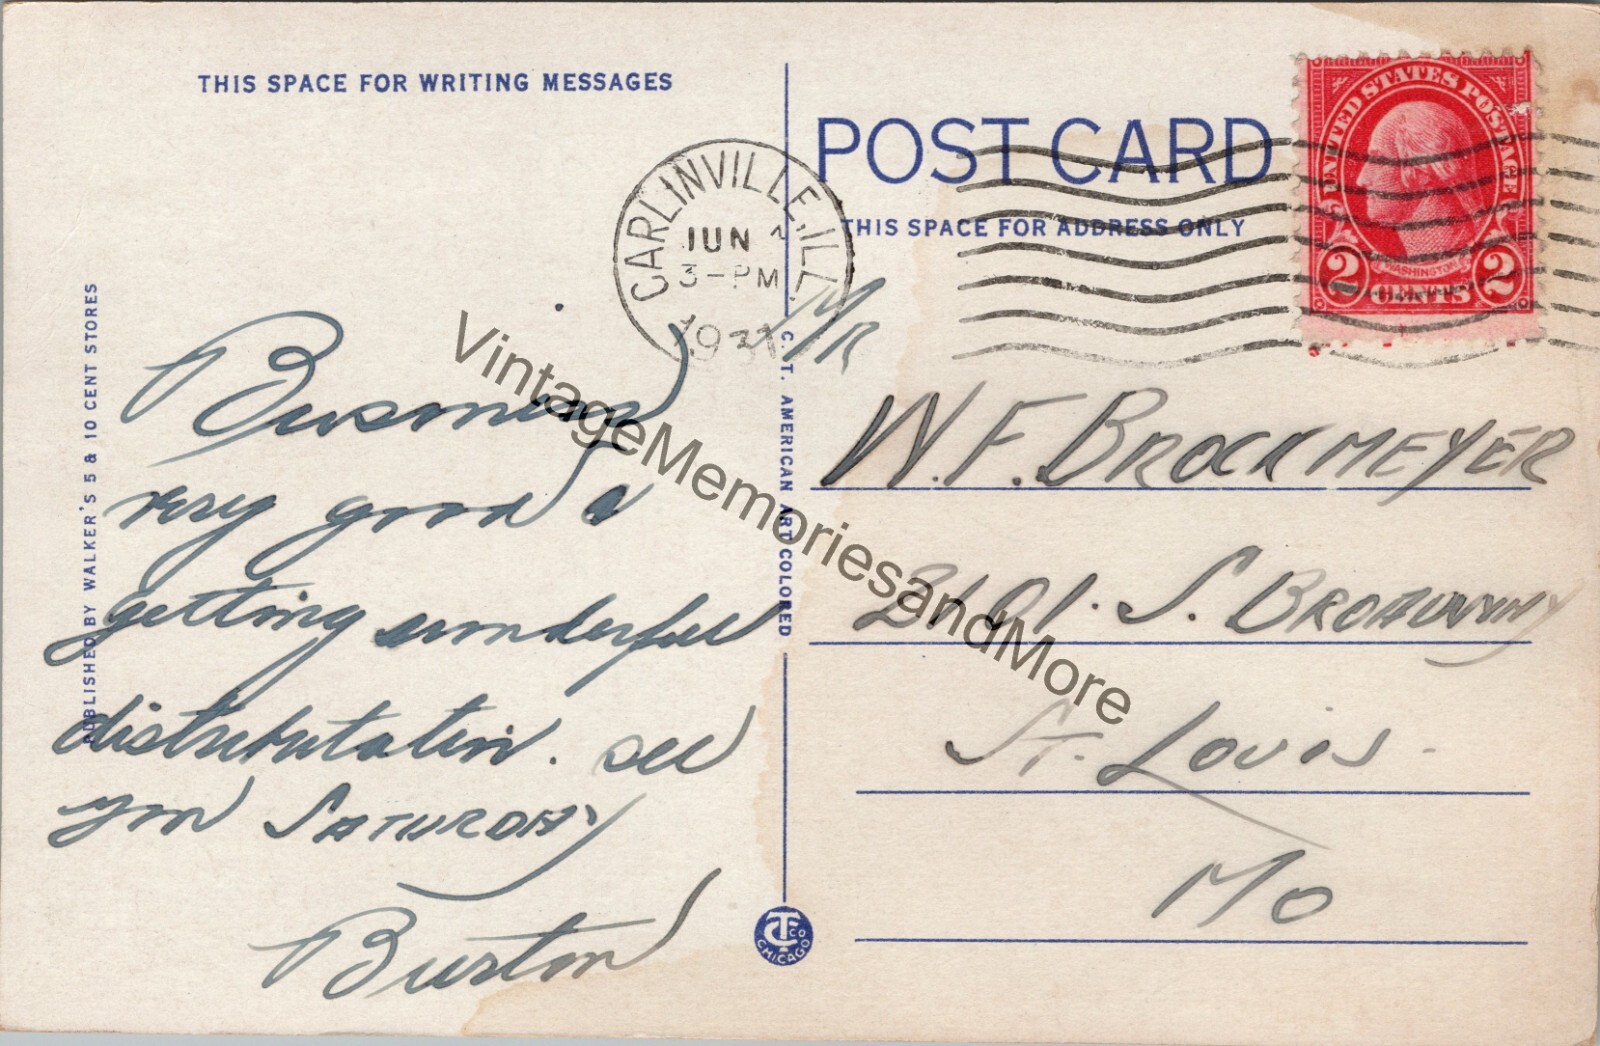 THIS SPACE FOR WRITING MESSAGES
POST CARD
THIS SPACE FOR ADDRESS ONLY
CARLINVILLE, ILL.
JUN
3-PM
1931
UNITED STATES POSTAGE
WASHINGTON
2 CENTS 2
PUBLISHED BY WALKER'S 5 & 10 CENT STORES
C. T. AMERICAN ART COLORED
very good &
getting wonderful
distributation. see
you SATURDAY
Burton
MR
W. F. BROCKMEYER
S. BROADWAY
ST. LOUIS.
MO
CT CO
CHICAGO
VintageMemoriesandMore